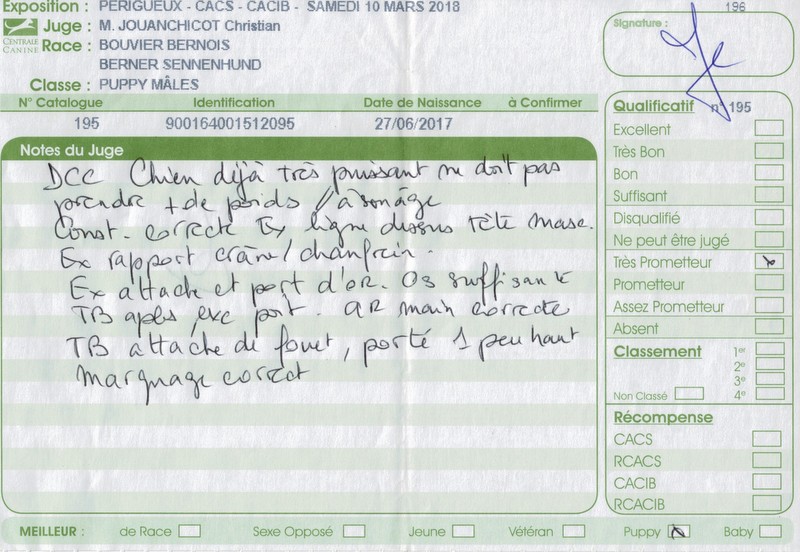 Exposition : PERIGUEUX - CACS - CACIB - SAMEDI 10 MARS 2018
196
CENTRALE CANINE
Juge : M. JOUANCHICOT Christian
Signature :
Race : BOUVIER BERNOIS
BERNER SENNENHUND
Classe : PUPPY MÂLES
N° Catalogue Identification Date de Naissance à Confirmer
195 900164001512095 27/06/2017
Notes du Juge
DCC Chien déjà très puissant ne doit pas
prendre + de poids / à son âge
Const. correcte Ex ligne dessus Tête masc.
Ex rapport crâne/chanfrein.
Ex attache et port d'or. Os suffisante
TB aplbs, exc poit. AR main correcte
TB attache de fouet, porté 1 peu haut
Marquage correct
Qualificatif n° 195
Excellent
Très Bon
Bon
Suffisant
Disqualifié
Ne peut être jugé
Très Prometteur x
Prometteur
Assez Prometteur
Absent
Classement 1er
2e
3e
Non Classé 4e
Récompense
CACS
RCACS
CACIB
RCACIB
MEILLEUR : de Race Sexe Opposé Jeune Vétéran Puppy x Baby